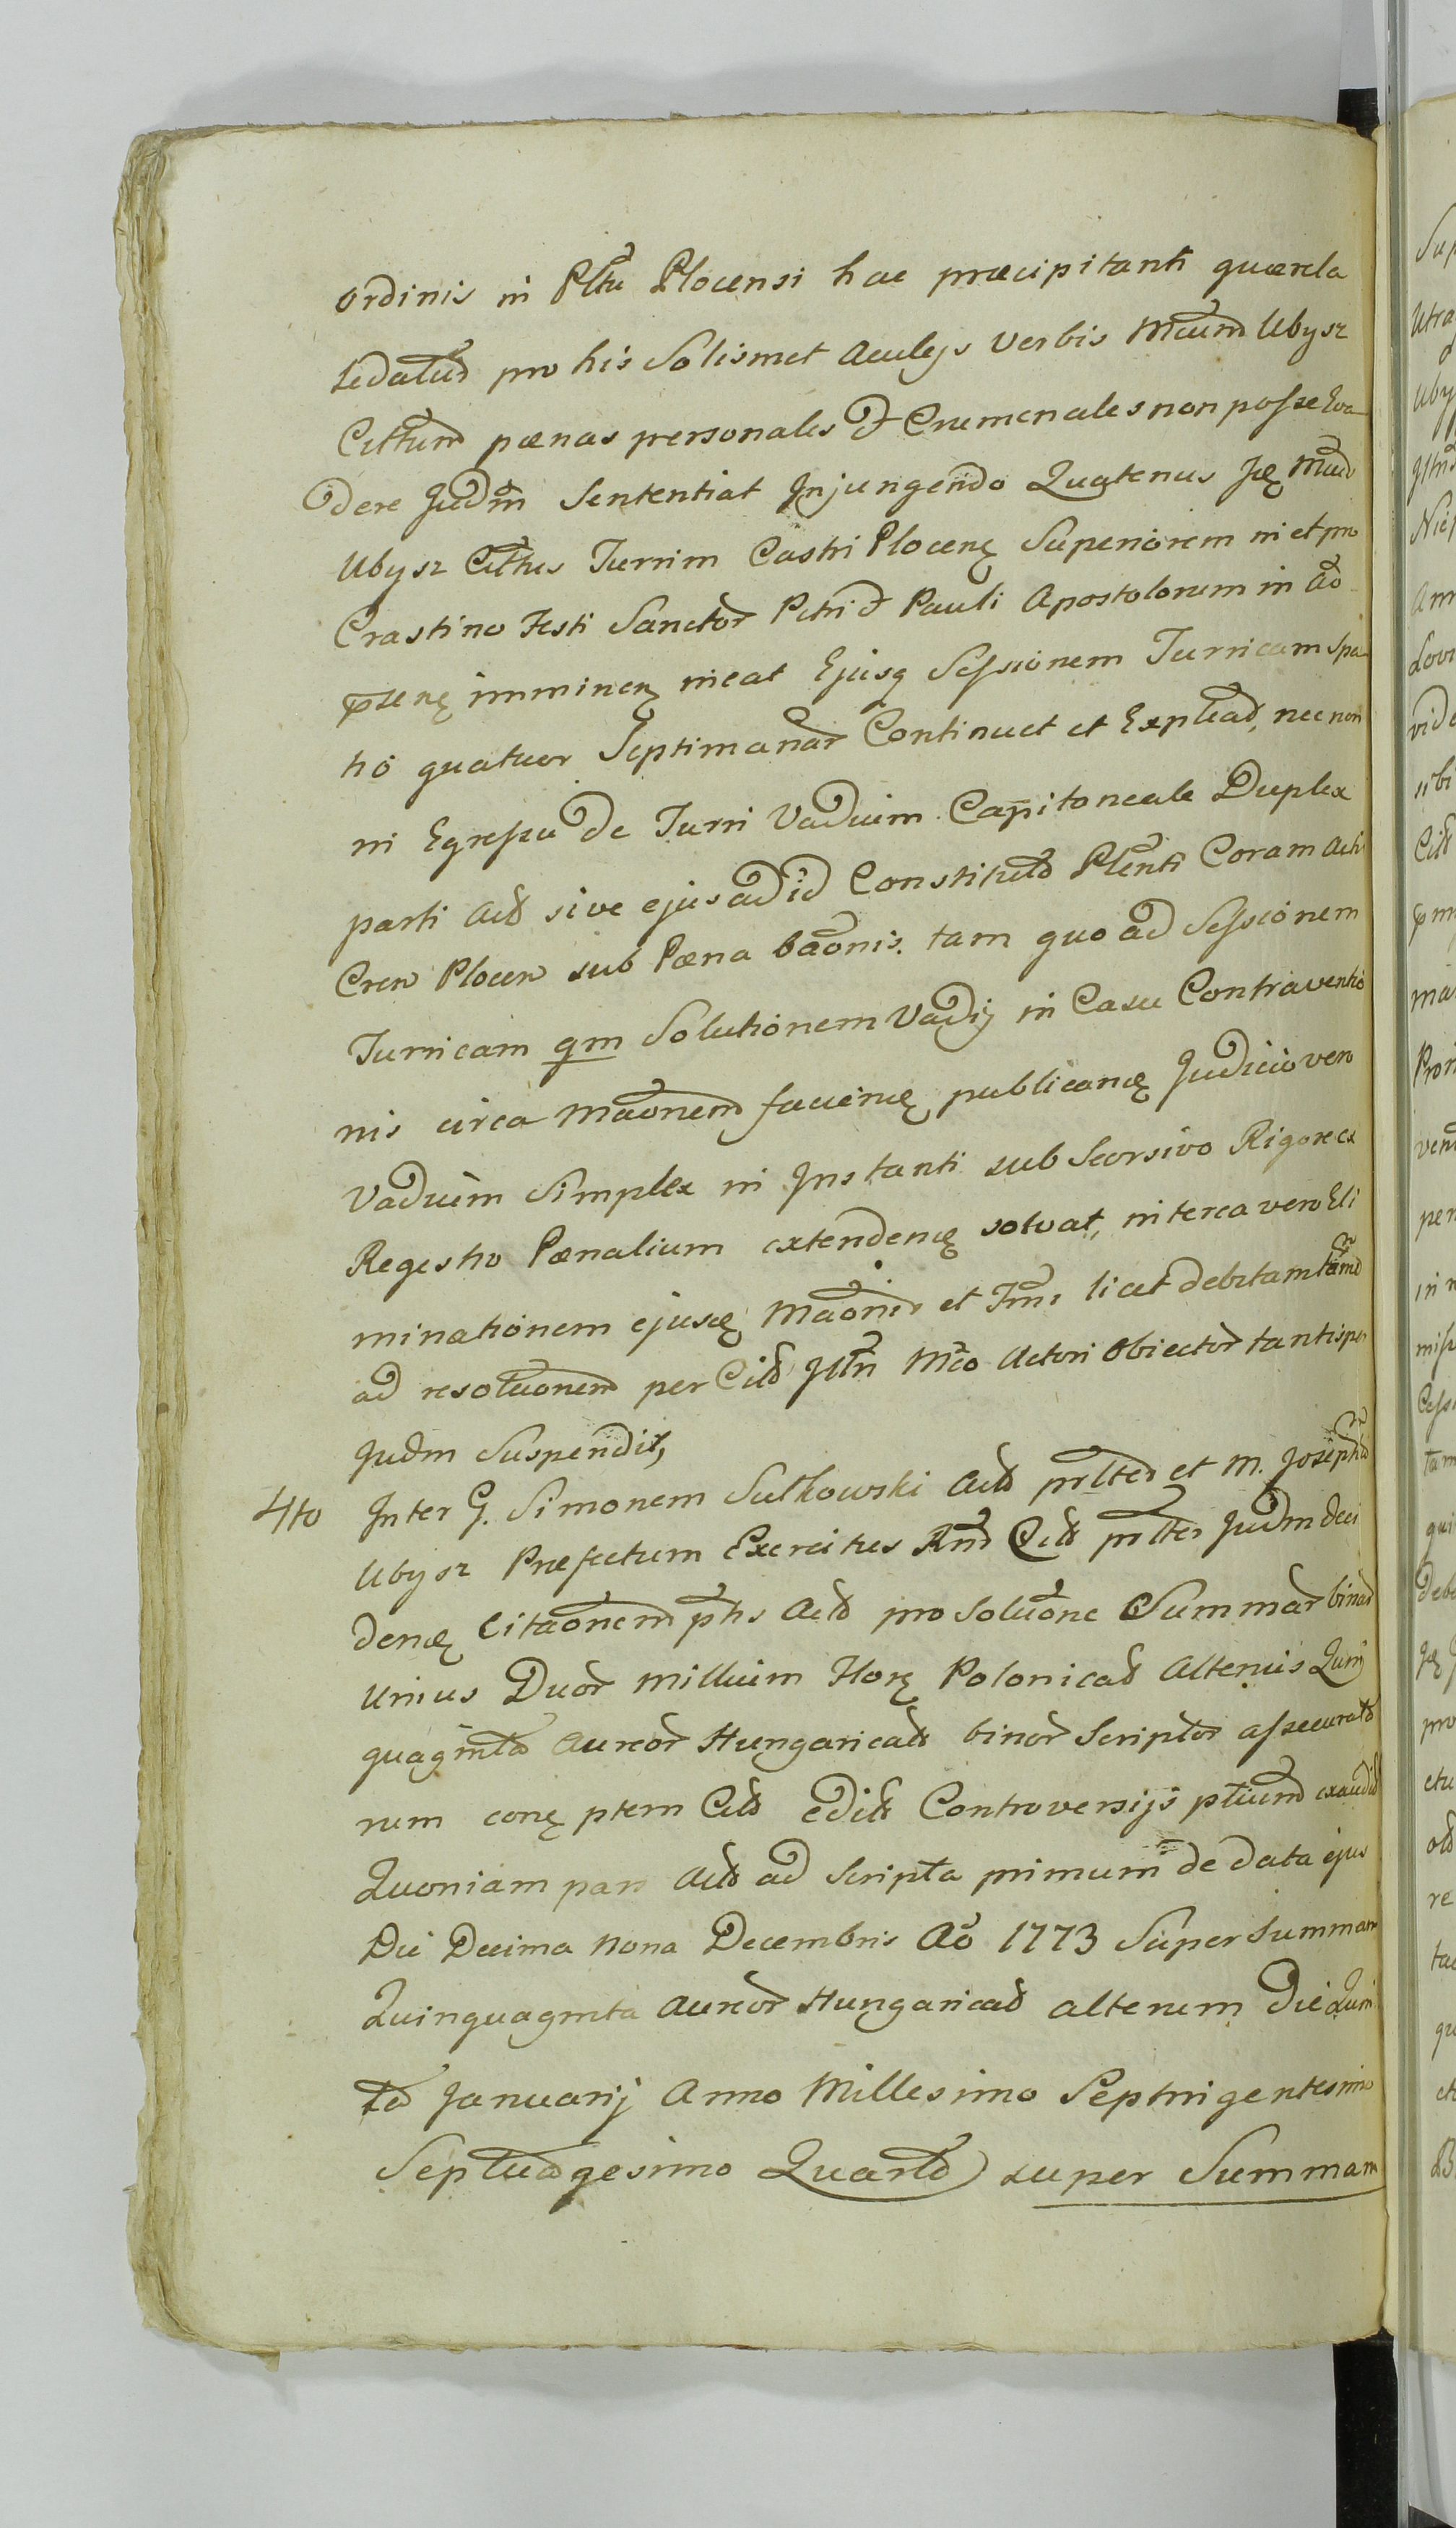 ordinis in Pltu Plocensi hac præcipitanti quærela
sedatud pro his Solismet Aculejs Verbis Mcum Ubysz
Cittum pænas personales & Crumenales non posse Eva
dere Judm Sententiat Injungendo Quatenus Mcus
Ubysz Cittus Turrim Castri Plocenę Superiorem in et pro
Crastino Festi Sanctor Petri & Pauli Apostolorum in Ao
przenę imminenę ineat Ejusq Sessionem Turricam spa
tio quatuor Septimanar Continuet et Expleat, nec non
in Egressu de Turri Vadium Capitoneale Duplex
parti Acts sive ejus ad id Constituto Plenti Coram Actis
Cren Plocen sub Pæna baonis. tam quo ad Sessionem
Turricam qm Solutionem Vadij in Casu Contraventio
nis circa Maonem facienę publicanę Judicio vero
Vadium Simplex in Instanti sub Seorsivo Rigore ex
Regestro Pænalium extendenę solvat, interea vero Eli
minationem ejuscę Maonis et Tmi licet debitam tamen
ad resolutionem per Citt Jttn Mco Actori Obiector tantisper
Judm Suspendit,
4to Inter G. Simonem Sulkowski Acts prlted et M. Josephum
Ubysz Præfectum Exercitus Rnd Citt prltes Judm deci
denę Citaonem pths Acts pro Solutone Summar binar
Unius Duor millium Flor Polonicat Alterius Quin
quaginta Aureor Hungaricat binor Scriptor assecurato
rum conę ptem Citt edits Controversijs ptium exaudit
Quoniam pars Acts ad Scripta primum de data ejus
Die Decima Nona Decembris Ao 1773 Super Summam
Quinquaginta Aureor Hungaricat alterum Die Quin
ta Januarij Anno Millesimo Septingentesimo
Septuagesimo Quarto super Summam